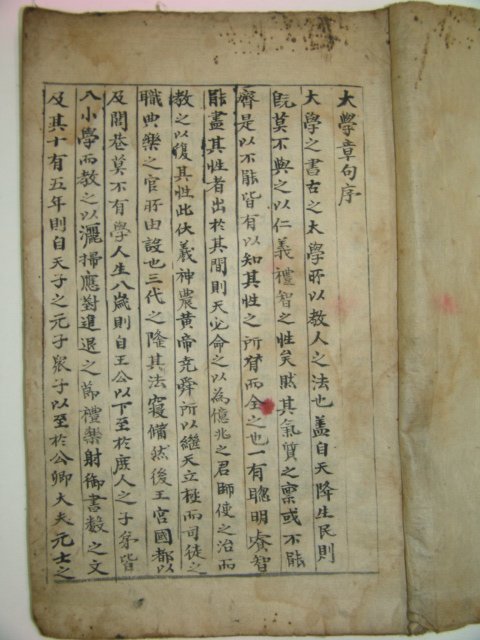 大學章句序
大學之書古之大學所以教人之法也盖自天降生民則
既莫不與之以仁義禮智之性矣然其氣質之禀或不能
齊是以不能皆有以知其性之所有而全之也一有聰明睿智
能盡其性者出於其間則天必命之以為億兆之君師使之治而
教之以復其性此伏羲神農黃帝堯舜所以繼天立極而司徒之
職典樂之官所由設也三代之隆其法寖備然後王宮國都以
及閭巷莫不有學人生八歲則自王公以下至於庶人之子弟皆
入小學而教之以灑掃應對進退之節禮樂射御書數之文
及其十有五年則自天子之元子衆子以至於公卿大夫元士之